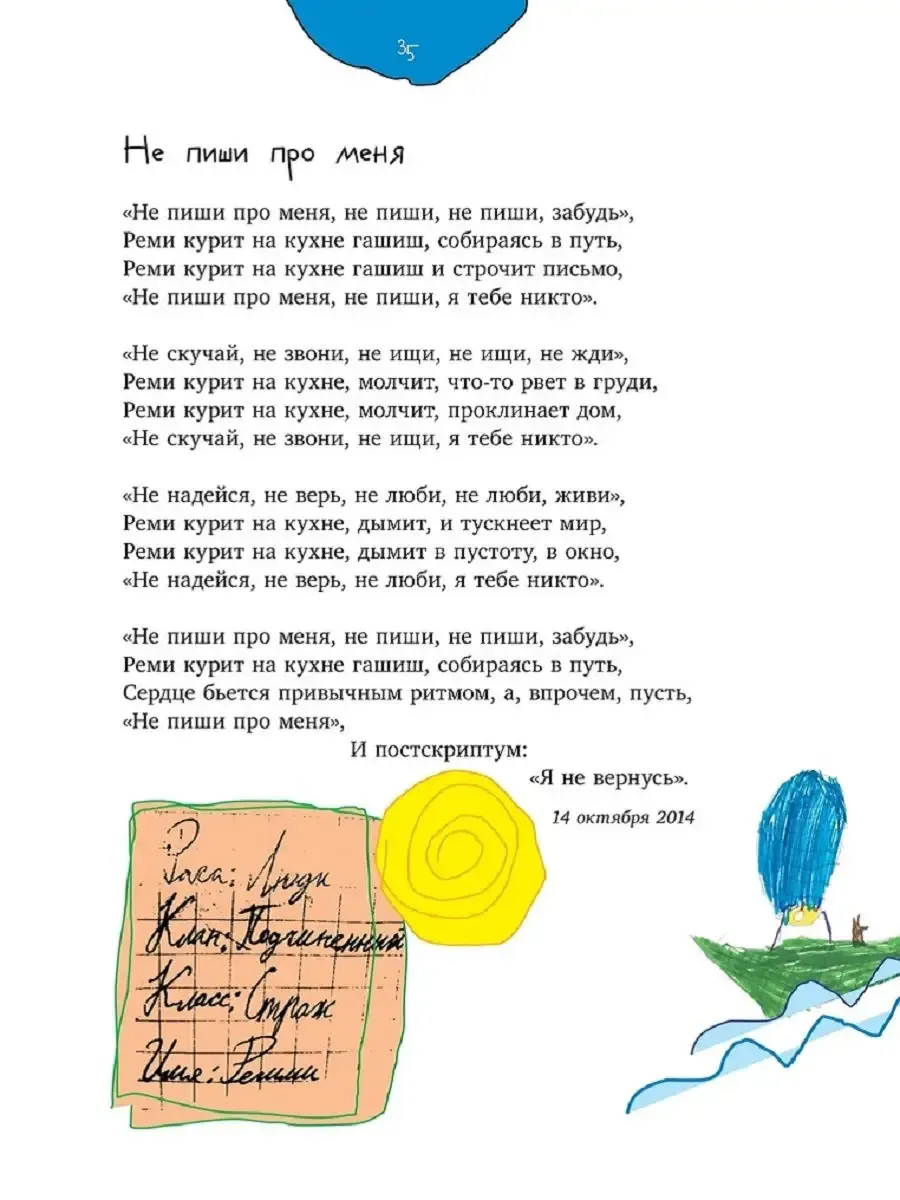 35
Не пиши про меня
«Не пиши про меня, не пиши, не пиши, забудь»,
Реми курит на кухне гашиш, собираясь в путь,
Реми курит на кухне гашиш и строчит письмо,
«Не пиши про меня, не пиши, я тебе никто».
«Не скучай, не звони, не ищи, не ищи, не жди»,
Реми курит на кухне, молчит, что-то рвет в груди,
Реми курит на кухне, молчит, проклинает дом,
«Не скучай, не звони, не ищи, я тебе никто».
«Не надейся, не верь, не люби, не люби, живи»,
Реми курит на кухне, дымит, и тускнеет мир,
Реми курит на кухне, дымит в пустоту, в окно,
«Не надейся, не верь, не люби, я тебе никто».
«Не пиши про меня, не пиши, не пиши, забудь»,
Реми курит на кухне гашиш, собираясь в путь,
Сердце бьется привычным ритмом, а, впрочем, пусть,
«Не пиши про меня»,
И постскриптум:
«Я не вернусь».
14 октября 2014
Раса: Люди
Клан: Подчиненный
Класс: Страж
Имя: Реми